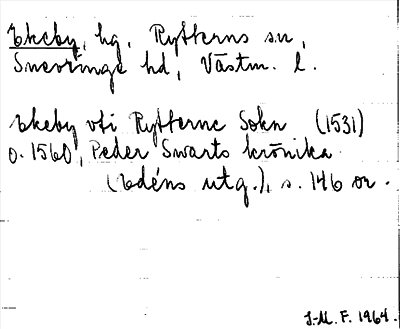 Ekeby, hg, Rytterns sn,
Snevringe hd, Västm. l.
Ekeby vti Rytterne Sokn (1531)
o. 1560, Peder Swarts krönika
(Edéns utg.), s. 146 or.
J-M. F. 1964.